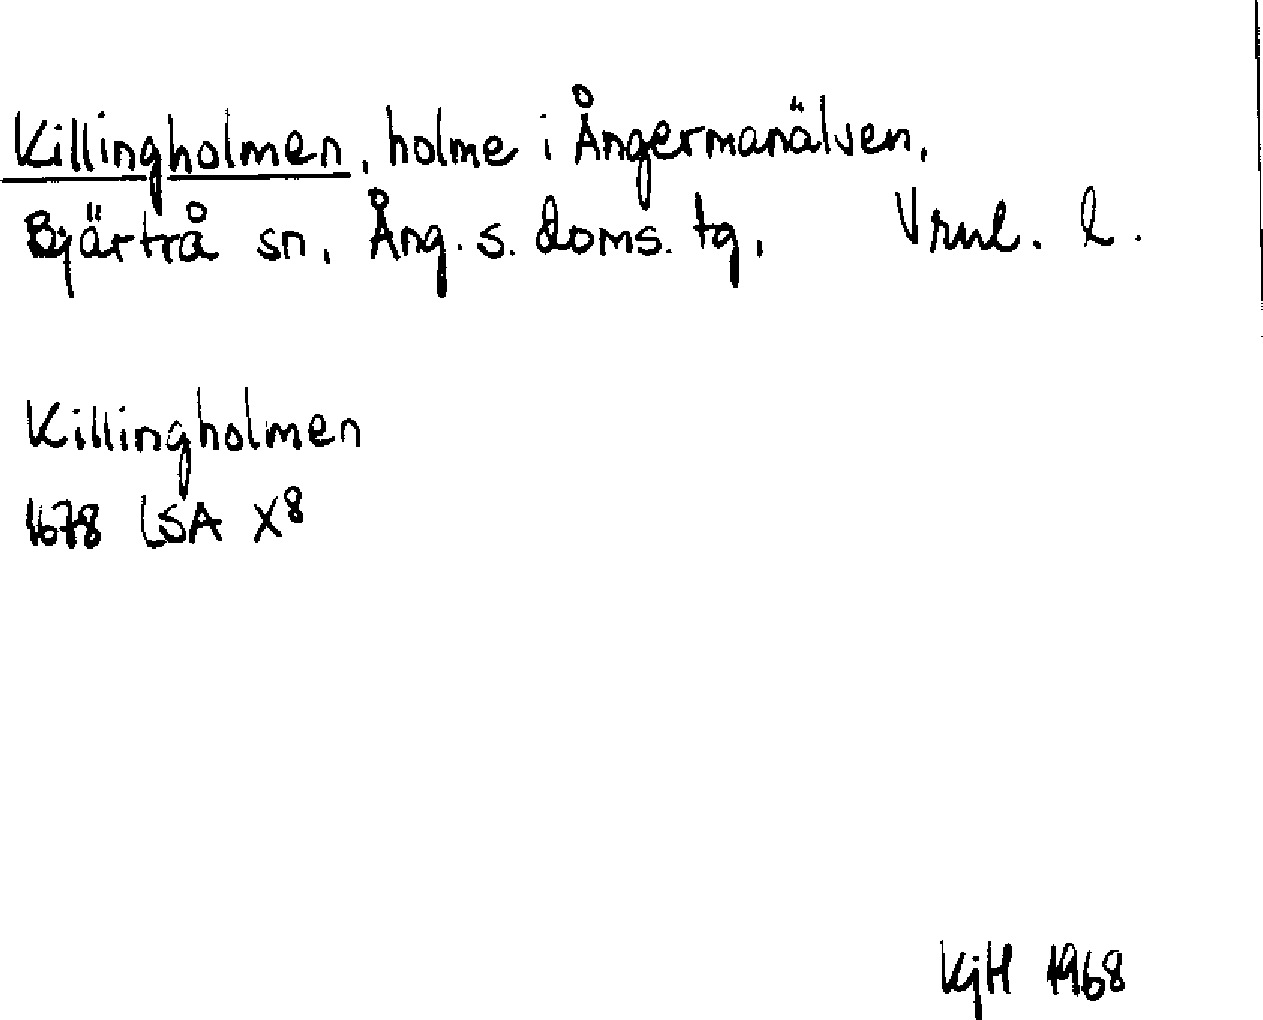 Killingholmen, holme i Ångermanälven,
Bjärtrå sn, Ång. s. doms. tg, Vrml. l.
Killingholmen
1678 LSA X8
KjH 1968